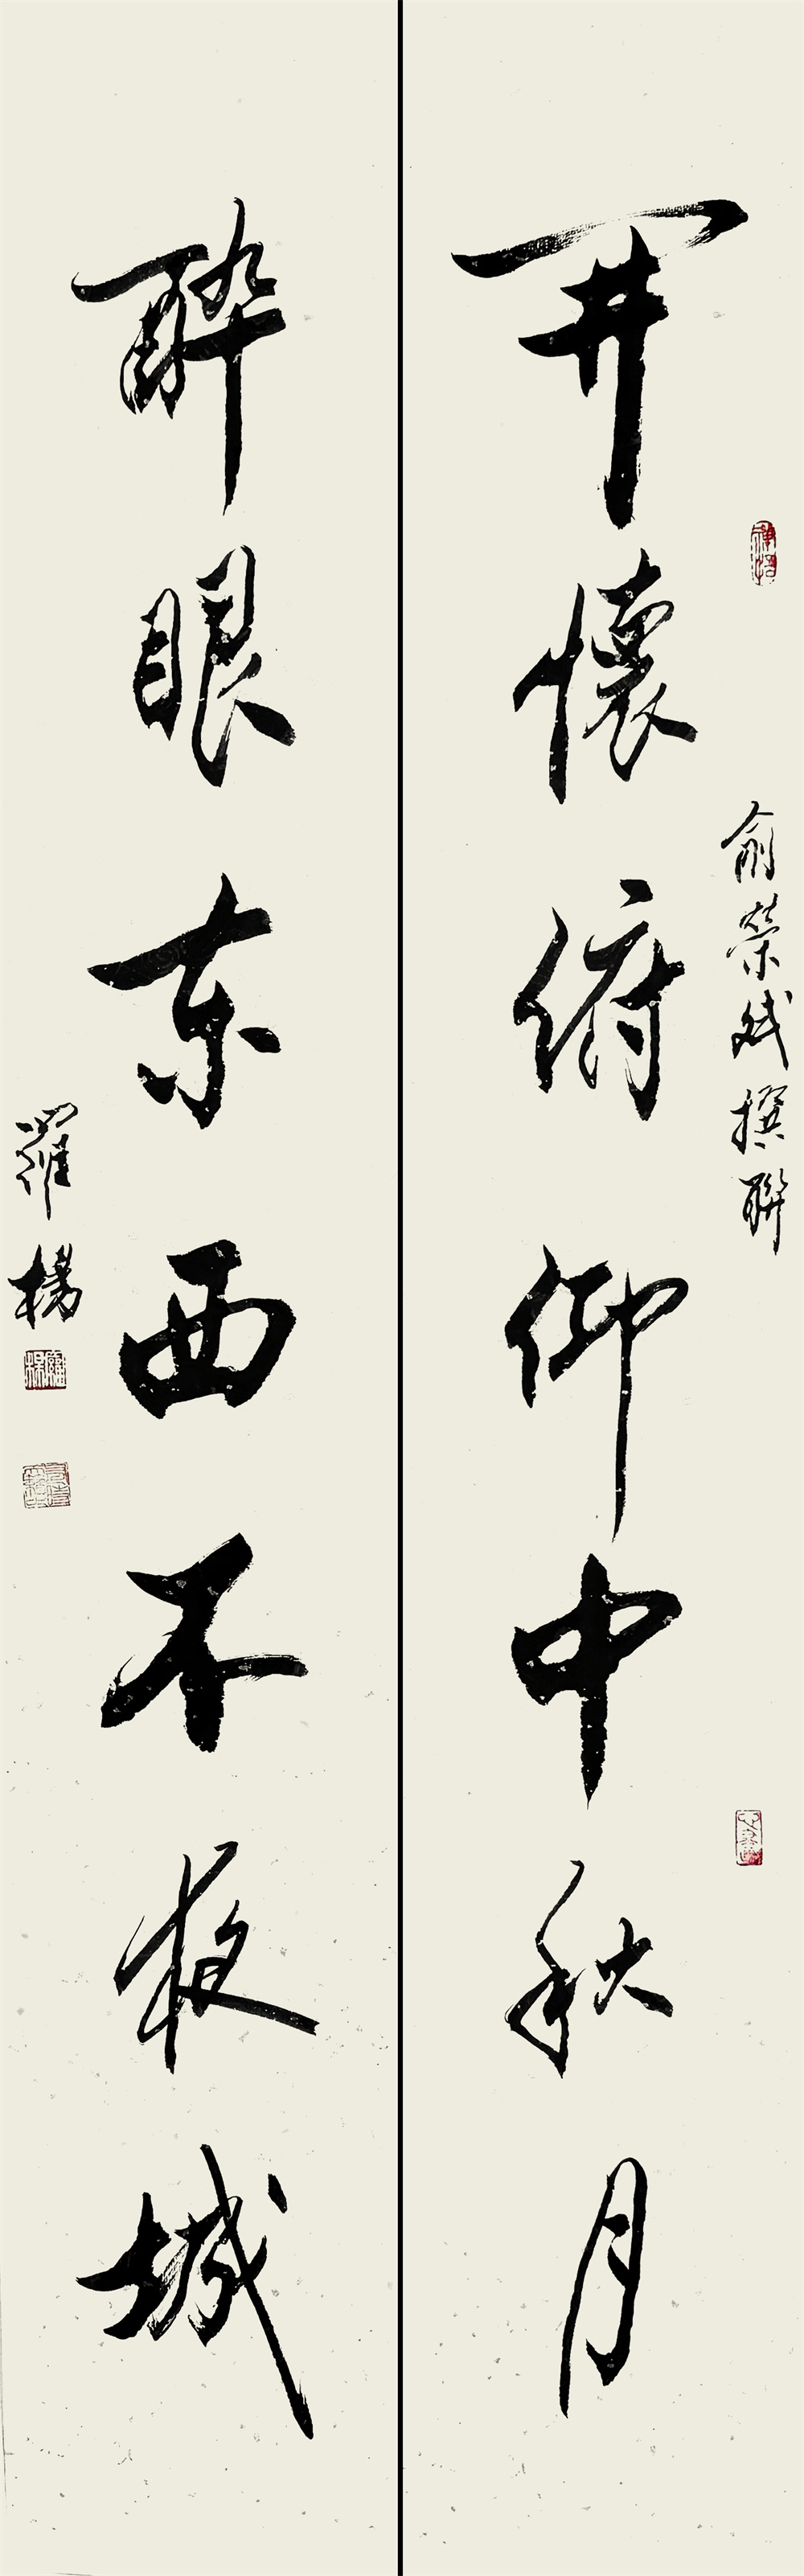 開懷俯仰中秋月
俞榮斌撰聯
醉眼东西不夜城
羅楊